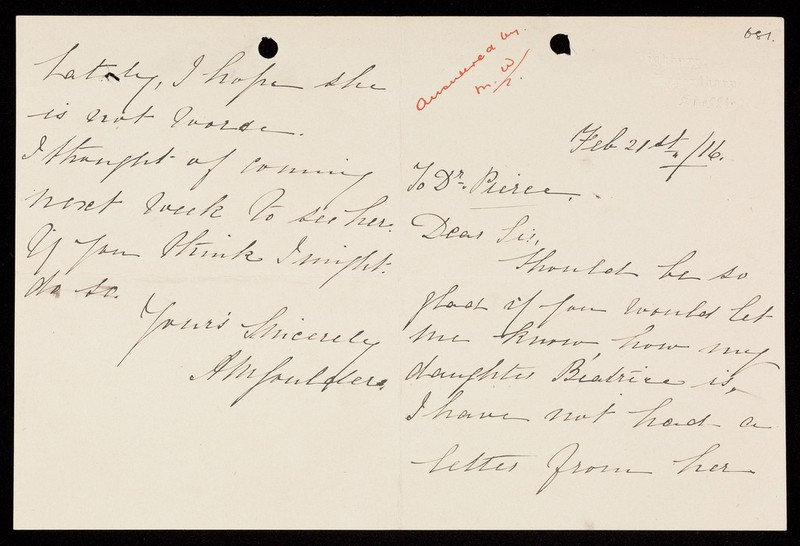 681.
Answered by
M. W.
Feb 21st/16.
To Dr. Pierce.
Dear Sir,
Should be so
glad if you would let
me know, how my
daughter Beatrice is,
I have not had a
letter from her
Lately, I hope she
is not worse.
I thought of coming
next week to see her.
If you think I might
do so.
Your's Sincerely